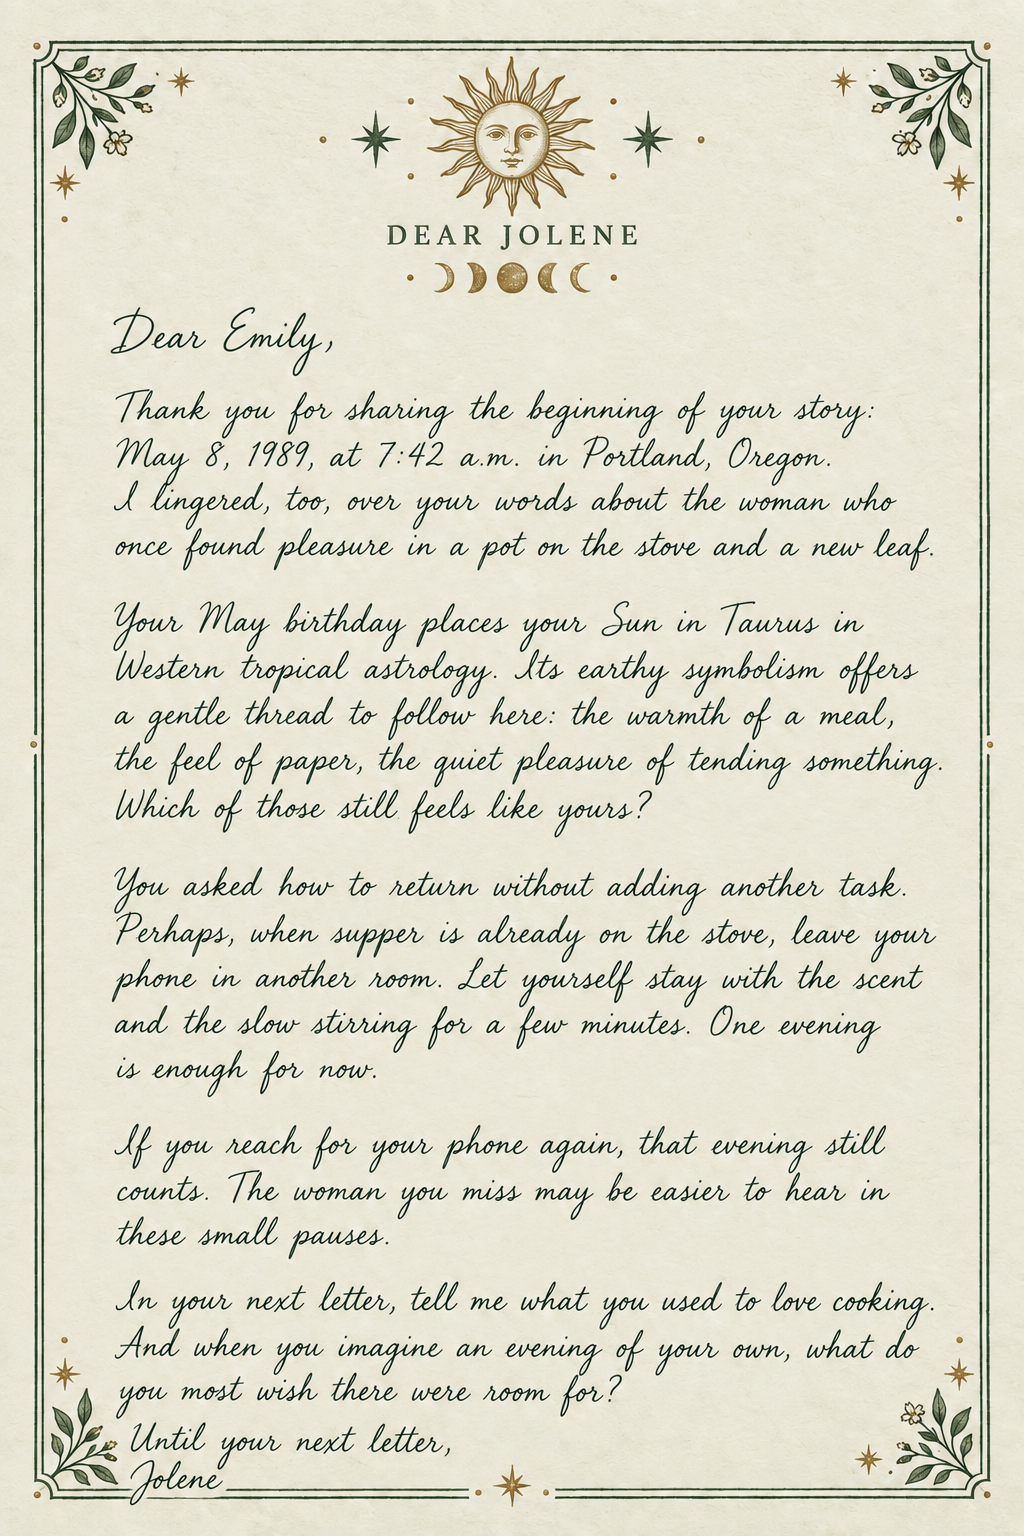 DEAR JOLENE
Dear Emily,
Thank you for sharing the beginning of your story:
May 8, 1989, at 7:42 a.m. in Portland, Oregon.
I lingered, too, over your words about the woman who
once found pleasure in a pot on the stove and a new leaf.
Your May birthday places your Sun in Taurus in
Western tropical astrology. Its earthy symbolism offers
a gentle thread to follow here: the warmth of a meal,
the feel of paper, the quiet pleasure of tending something.
Which of those still feels like yours?
You asked how to return without adding another task.
Perhaps, when supper is already on the stove, leave your
phone in another room. Let yourself stay with the scent
and the slow stirring for a few minutes. One evening
is enough for now.
If you reach for your phone again, that evening still
counts. The woman you miss may be easier to hear in
these small pauses.
In your next letter, tell me what you used to love cooking.
And when you imagine an evening of your own, what do
you most wish there were room for?
Until your next letter,
Jolene